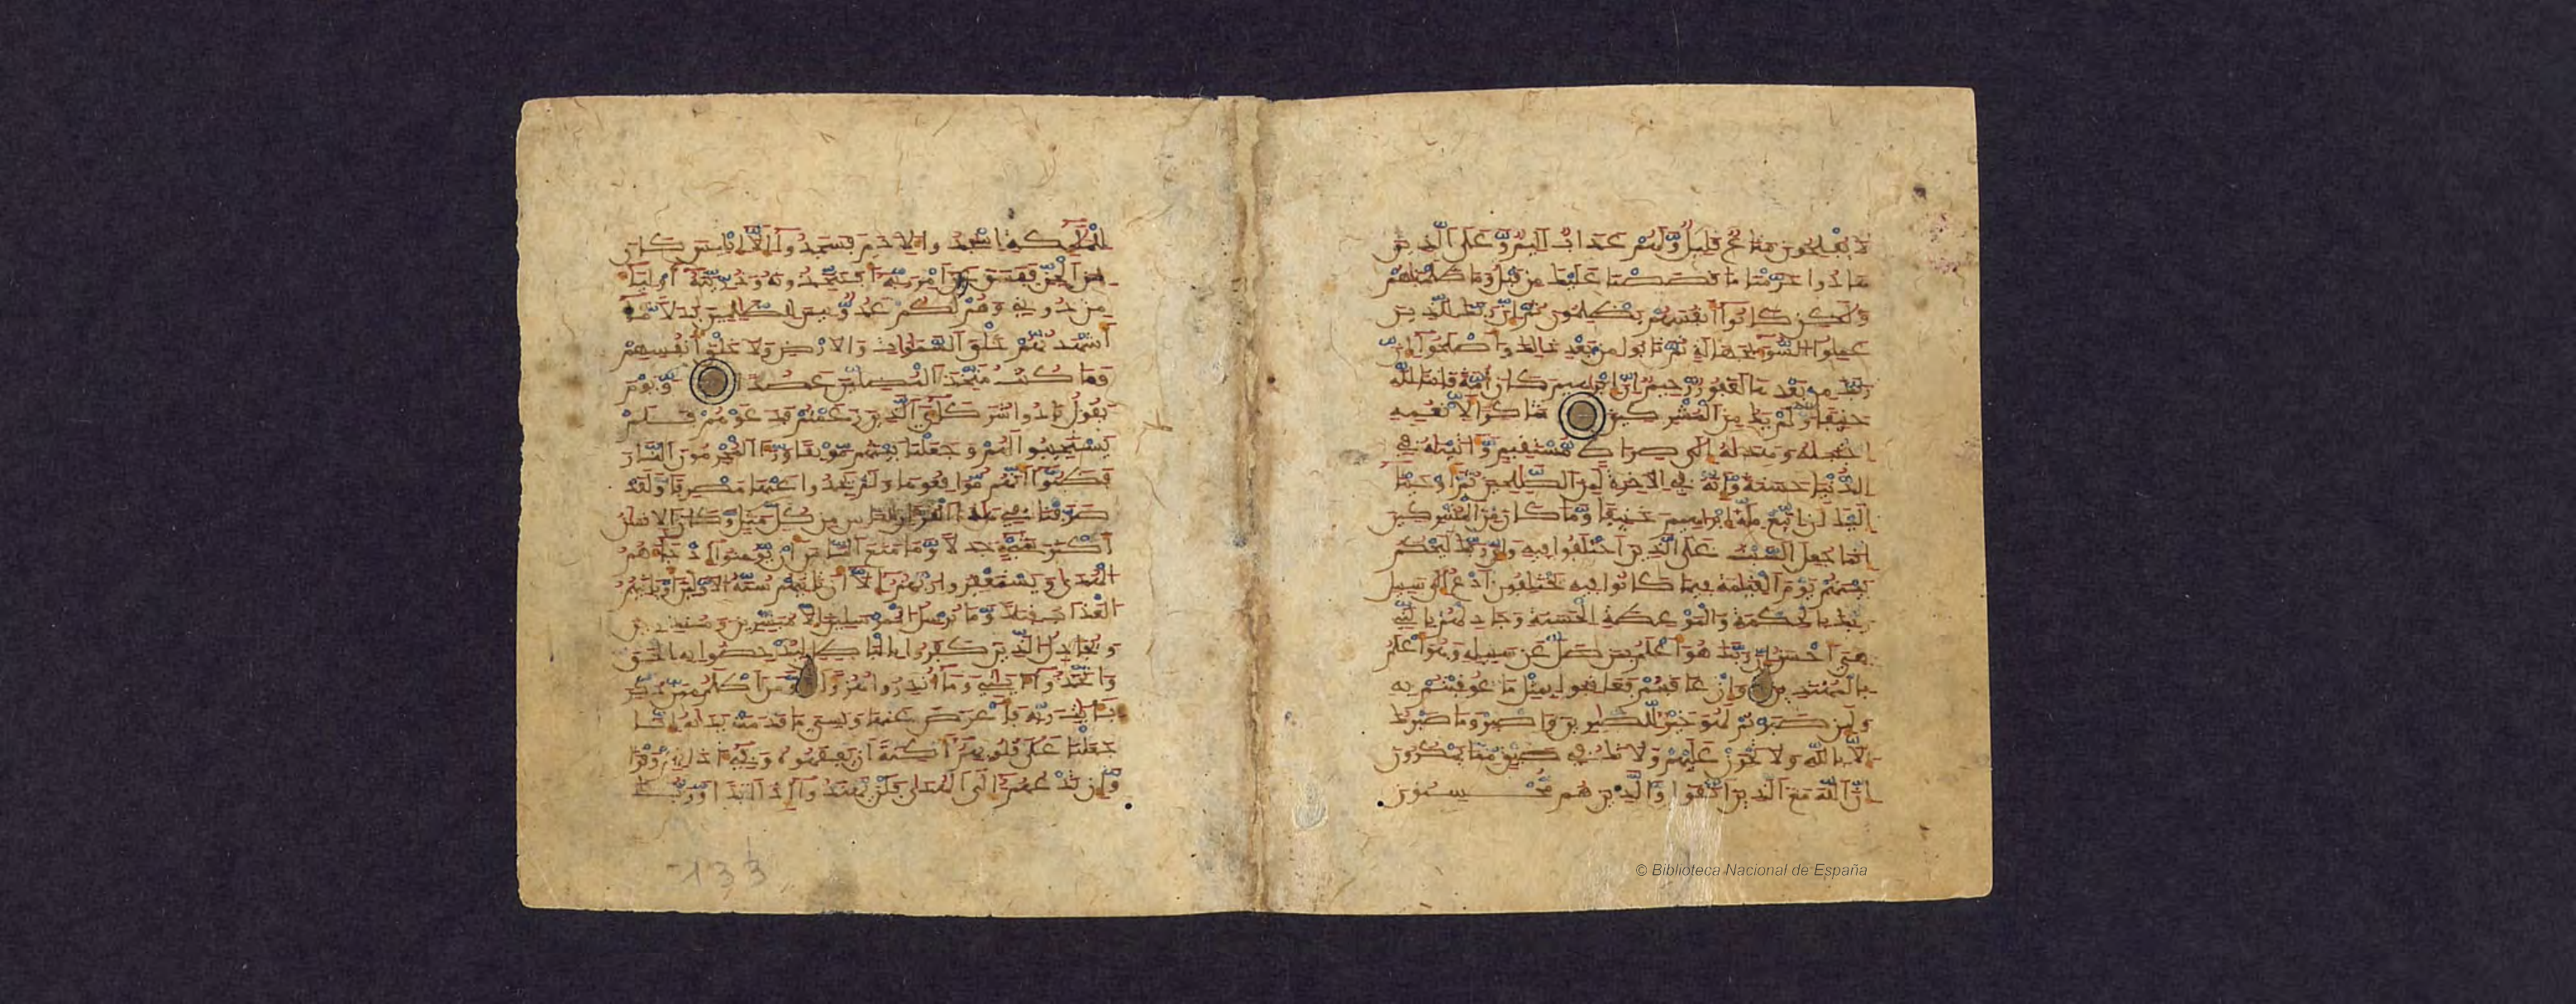 لا يفلحون متاع قليل ولهم عذاب اليم وعلى الذين
هادوا حرمنا ما قصصنا عليك من قبل وما ظلمناهم
ولكن كانوا انفسهم يظلمون ثم ان ربك للذين
عملوا السوء بجهالة ثم تابوا من بعد ذلك واصلحوا ان
ربك من بعدها لغفور رحيم ان ابرهيم كان امة قانتا لله
حنيفا ولم يك من المشركين شاكرا لانعمه
اجتبيه وهديه الى صراط مستقيم واتينه في
الدنيا حسنة وانه في الاخرة لمن الصلحين ثم اوحينا
اليك ان اتبع ملة ابرهيم حنيفا وما كان من المشركين
انما جعل السبت على الذين اختلفوا فيه وان ربك ليحكم
بينهم يوم القيمة فيما كانوا فيه يختلفون ادع الى سبيل
ربك بالحكمة والموعظة الحسنة وجادلهم بالتي
هي احسن ان ربك هو اعلم بمن ضل عن سبيله وهو اعلم
بالمهتدين وان عاقبتم فعاقبوا بمثل ما عوقبتم به
ولئن صبرتم لهو خير للصبرين واصبر وما صبرك
الا بالله ولا تحزن عليهم ولا تك في ضيق مما يمكرون
ان الله مع الذين اتقوا والذين هم محسنون
للملئكة اسجدوا لادم فسجدوا الا ابليس كان
من الجن ففسق عن امر ربه افتتخذونه وذريته اولياء
من دوني وهم لكم عدو بيس للظلمين بدلا ما
اشهدتهم خلق السموات والارض ولا خلق انفسهم
وما كنت متخذ المضلين عضدا ويوم
يقول نادوا شركاءي الذين زعمتم فدعوهم فلم
يستجيبوا لهم وجعلنا بينهم موبقا ورءا المجرمون النار
فظنوا انهم مواقعوها ولم يجدوا عنها مصرفا ولقد
صرفنا في هذا القران للناس من كل مثل وكان الانسان
اكثر شيء جدلا وما منع الناس ان يومنوا اذ جاءهم
الهدى ويستغفروا ربهم الا ان تاتيهم سنة الاولين او ياتيهم
العذاب قبلا وما نرسل المرسلين الا مبشرين ومنذرين
ويجادل الذين كفروا بالباطل ليدحضوا به الحق
واتخذوا ءايتي وما انذروا هزؤا ومن اظلم ممن ذكر
بايت ربه فاعرض عنها ونسي ما قدمت يداه انا
جعلنا على قلوبهم اكنة ان يفقهوه وفي ءاذانهم وقرا
وان تدعهم الى الهدى فلن يهتدوا اذا ابدا وربك
133
© Biblioteca Nacional de España